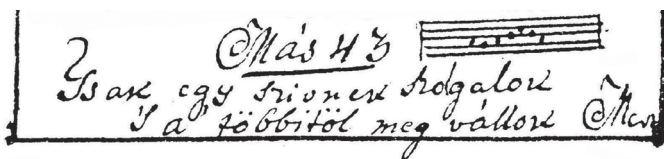 Más 43
Tsak egy szivnek szógalok
'S a' többitöl meg vállok